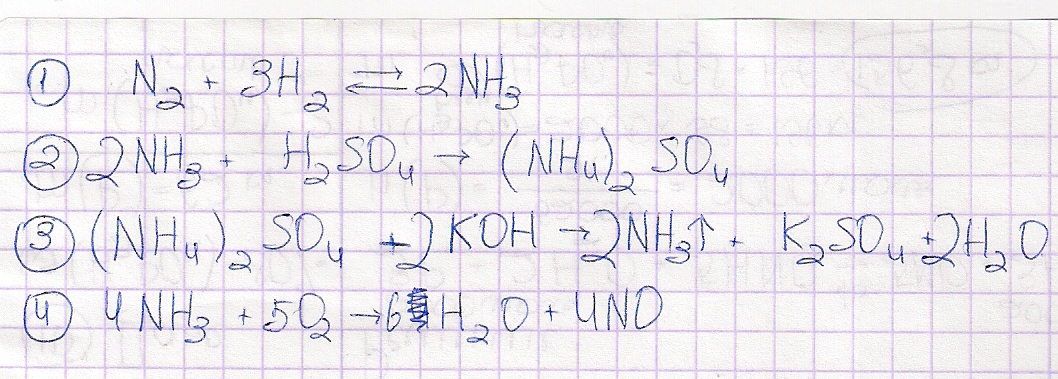 ① N₂ + 3H₂ ⇄ 2NH₃
② 2NH₃ + H₂SO₄ → (NH₄)₂ SO₄
③ (NH₄)₂ SO₄ + 2KOH → 2NH₃↑ + K₂SO₄ + 2H₂O
④ 4NH₃ + 5O₂ → 6H₂O + 4NO